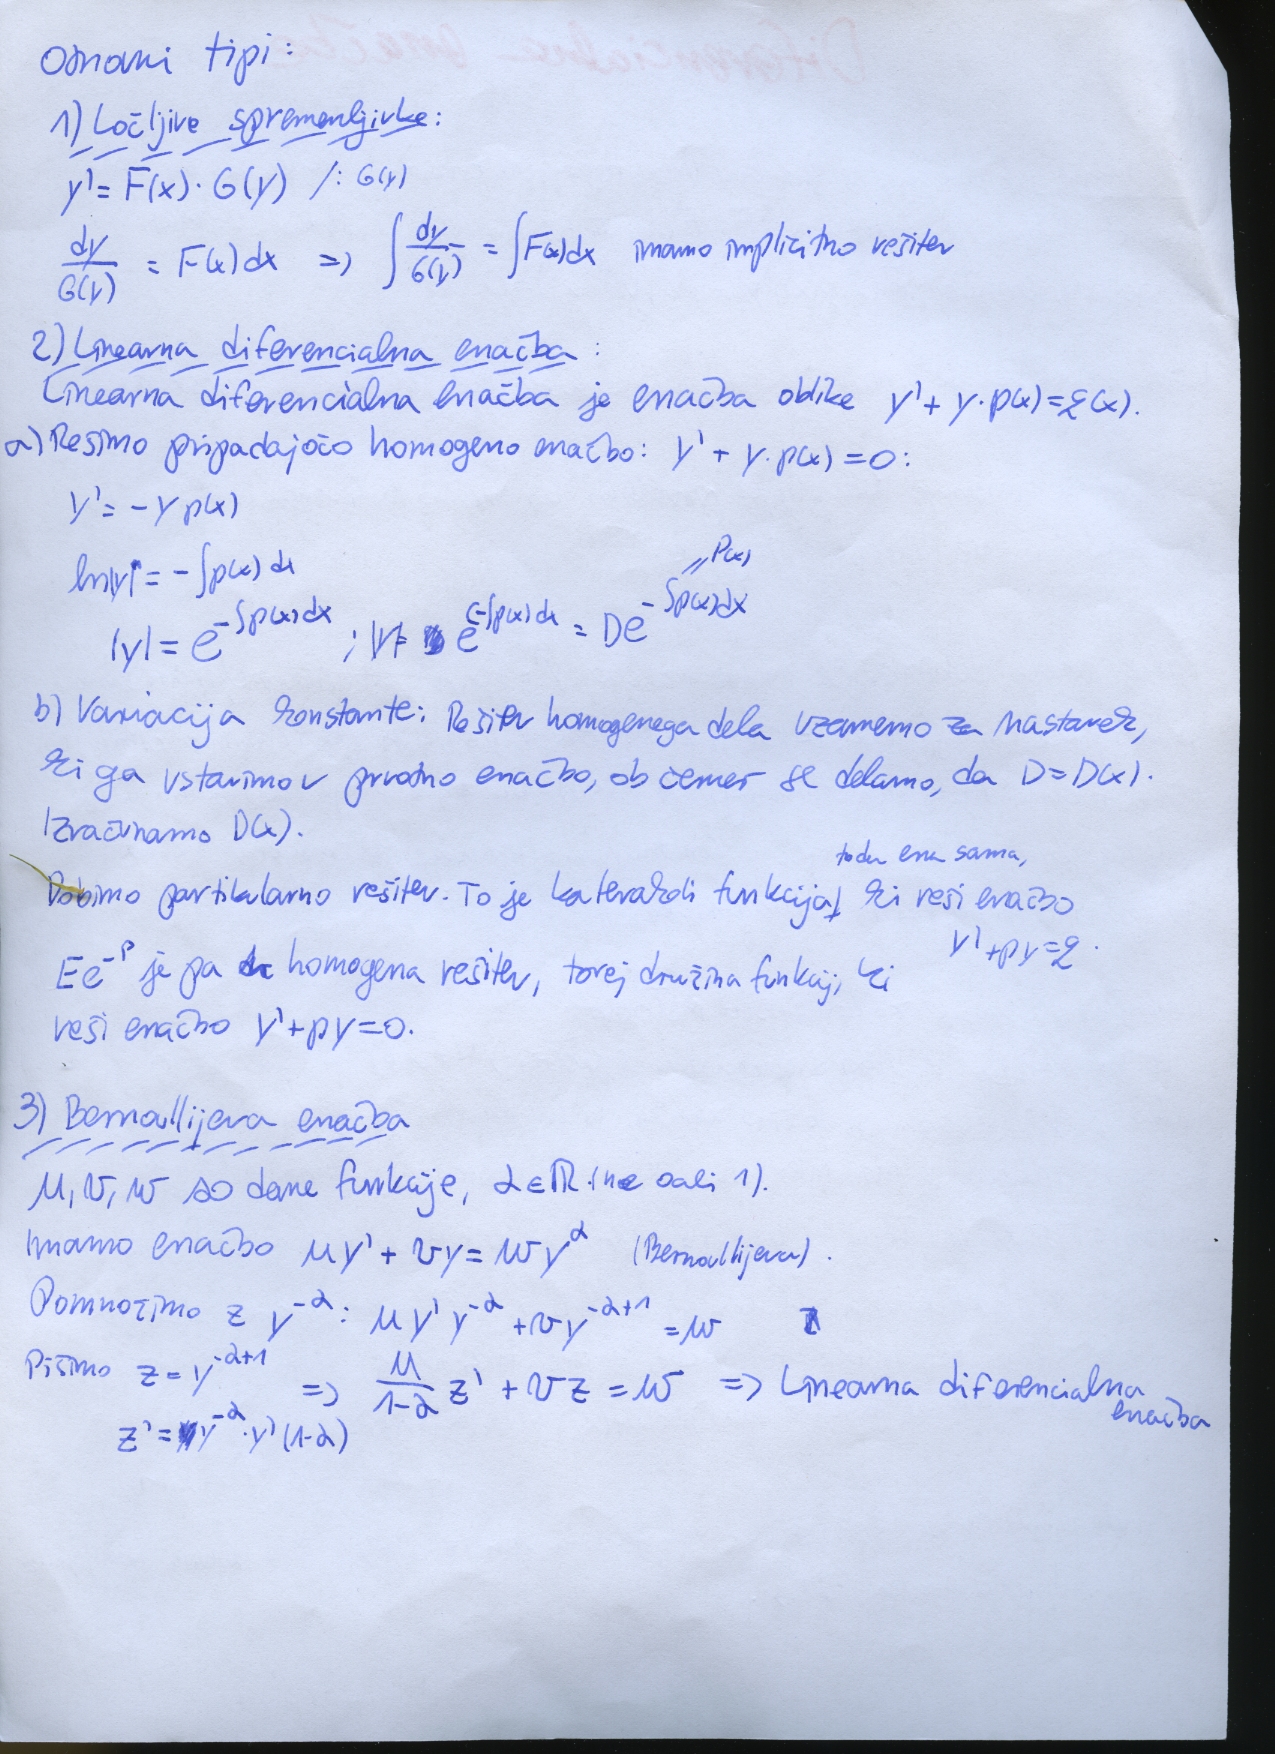 Osnovni tipi:
1) Ločljive spremenljivke:
y' = F(x)·G(y) /: G(y)
dy/G(y) = F(x)dx => ∫ dy/G(y) = ∫F(x)dx imamo implicitno rešitev
2) Linearna diferencialna enačba:
Linearna diferencialna enačba je enačba oblike y' + y·p(x) = q(x).
a) Rešimo pripadajočo homogeno enačbo: y' + y·p(x) = 0:
y' = -y p(x)
ln|y| = -∫p(x) dx
|y| = e^{-∫p(x)dx} ; |y| = e^{C-∫p(x)dx} = De^{-∫p(x)dx} = P(x)
b) Variacija konstante: Rešitev homogenega dela vzamemo za nastavek,
ki ga vstavimo v prvotno enačbo, ob čemer se delamo, da D = D(x).
Izračunamo D(x).
Dobimo partikularno rešitev. To je katerakoli funkcija, toda ena sama, ki reši enačbo
y' + py = q.
Ee^{-P} je pa homogena rešitev, torej družina funkcij, ki
reši enačbo y' + py = 0.
3) Bernoullijeva enačba
u, v, w so dane funkcije, α ∈ ℝ (ne 0 ali 1).
Imamo enačbo uy' + vy = wy^α (Bernoullijeva).
Pomnožimo z y^{-α}: uy'y^{-α} + vy^{-α+1} = w
Pišimo z = y^{-α+1} => u/(1-α) z' + vz = w => Linearna diferencialna enačba
z' = y^{-α}·y'(1-α)